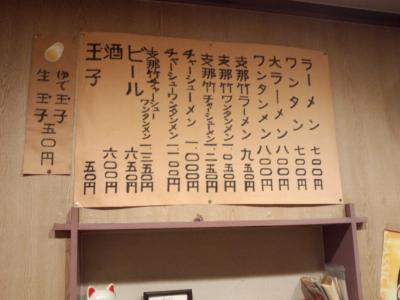 ラーメン 七〇〇円
ワンタン 七〇〇円
大ラーメン 八〇〇円
ワンタンメン 八〇〇円
支那竹ラーメン 九五〇円
支那竹ワンタンメン 一、〇五〇円
支那竹チャーシューメン 一、二五〇円
チャーシューメン 一、〇〇〇円
チャーシューワンタンメン 一、一〇〇円
支那竹チャーシューワンタンメン 一、三五〇円
ビール 六五〇円
酒 六〇〇円
玉子 五〇円
ゆで玉子
生玉子 五〇円